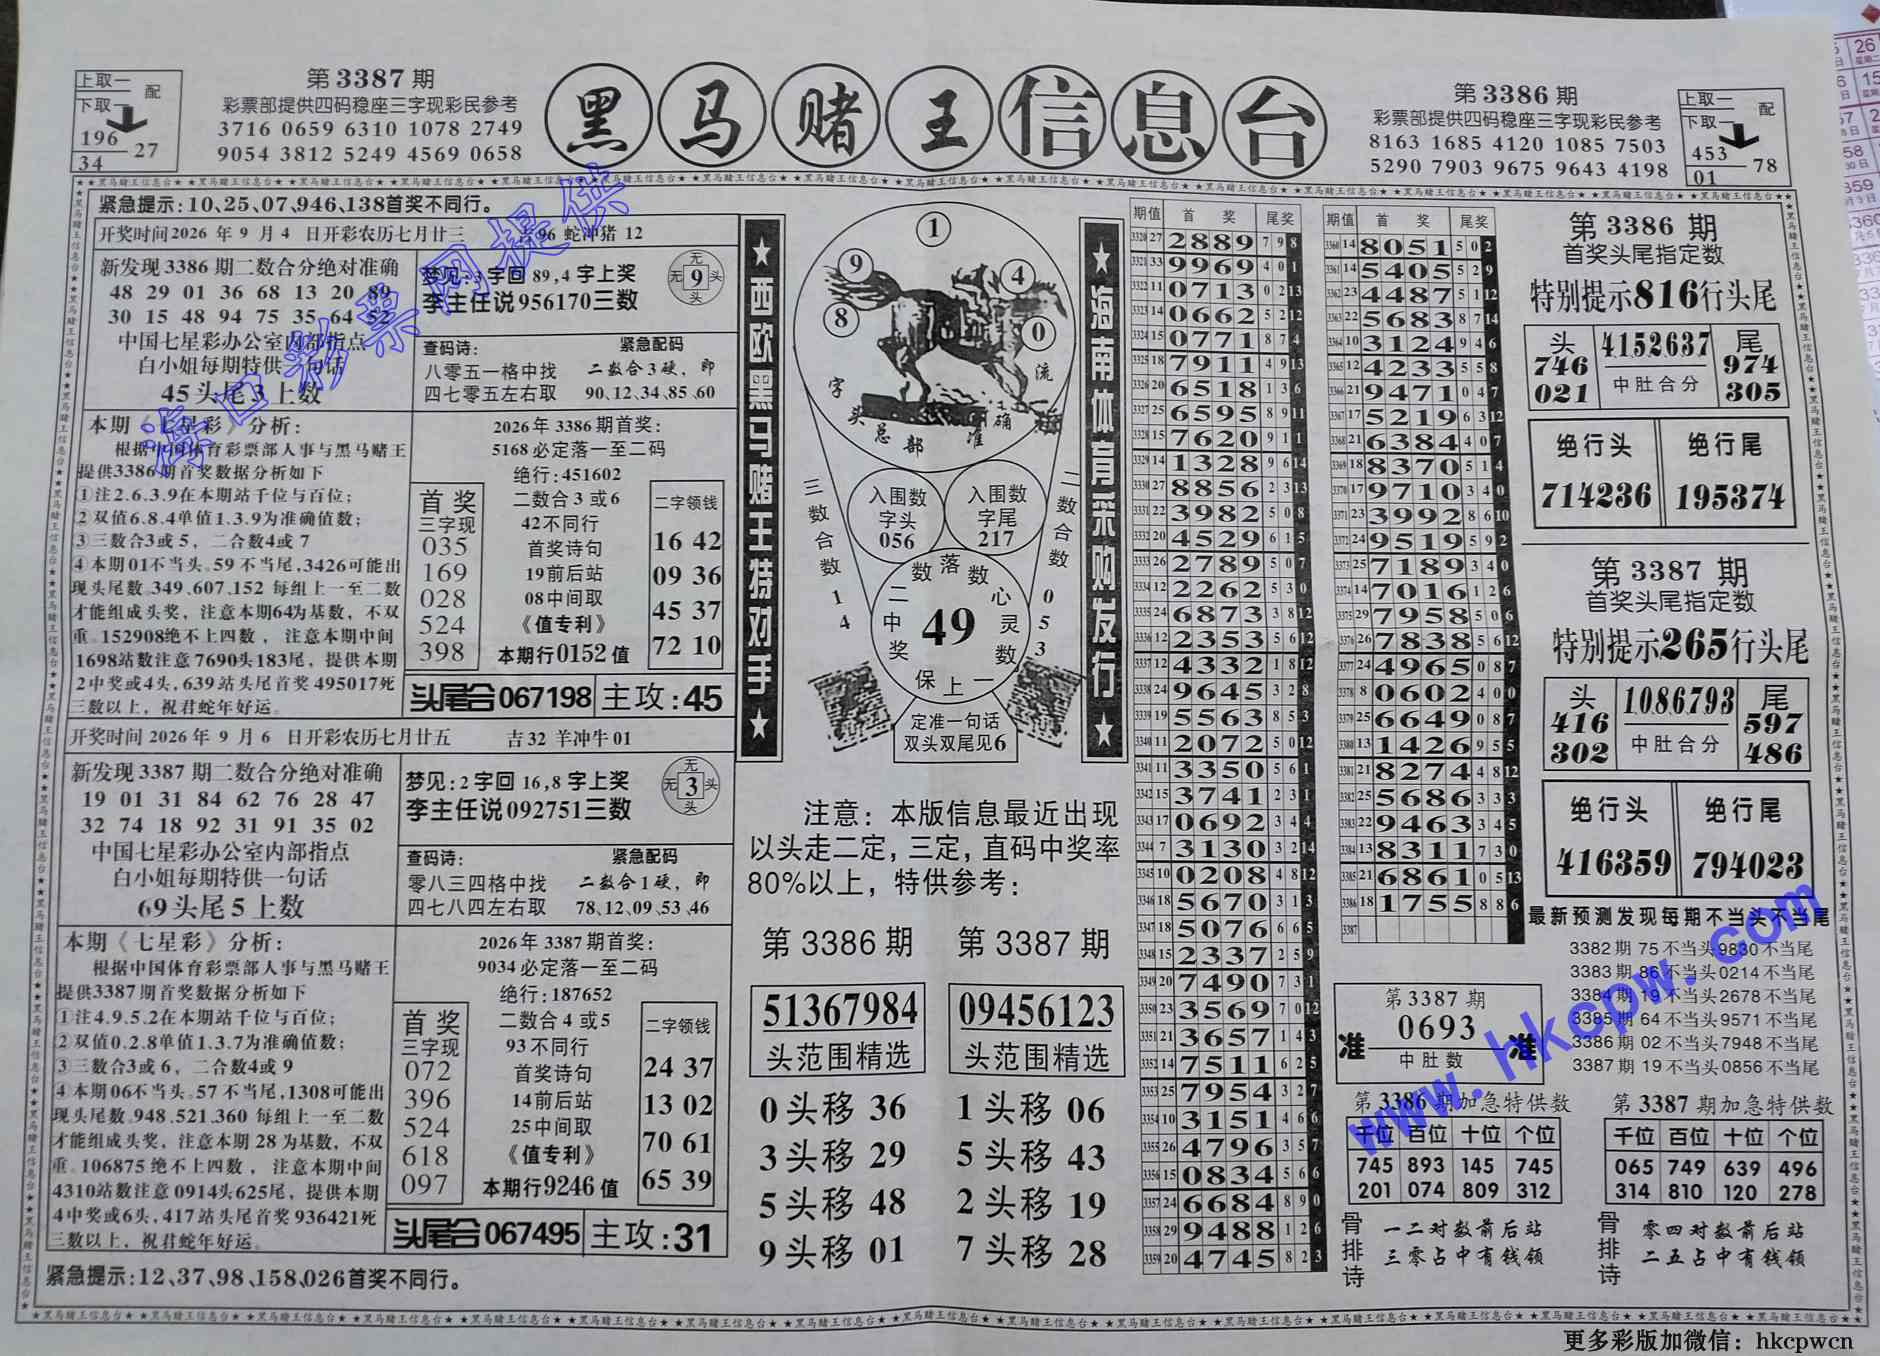 上取一
下取一
配
196
34
27
第3387期
彩票部提供四码稳座三字现彩民参考
3716 0659 6310 1078 2749
9054 3812 5249 4569 0658
黑马赌王信息台
第3386期
彩票部提供四码稳座三字现彩民参考
8163 1685 4120 1085 7503
5290 7903 9675 9643 4198
上取一
下取一
配
453
01
78
紧急提示:10、25、07、946、138首奖不同行。
开奖时间2026年9月4日开彩农历七月廿三 吉96 蛇冲猪 12
新发现3386期二数合分绝对准确
48 29 01 36 68 13 20 89
30 15 48 94 75 35 64 52
中国七星彩办公室内部指点
白小姐每期特供一句话
45头尾3上数
梦见:3字回89,4字上奖
李主任说956170三数
无
无9头
头
查码诗:
八零五一格中找
四七零五左右取
紧急配码
二数合3硬，即
90,12,34,85,60
本期《七星彩》分析:
根据中国体育彩票部人事与黑马赌王
提供3386期首奖数据分析如下
①注2.6.3.9在本期站千位与百位;
②双值6.8.4单值1.3.9为准确值数;
③三数合3或5，二合数4或7
④本期01不当头.59不当尾,3426可能出
现头尾数.349.607.152每组上一至二数
才能组成头奖，注意本期64为基数，不双
重。152908绝不上四数，注意本期中间
1698站数注意7690头183尾，提供本期
2中奖或4头,639站头尾首奖495017死
三数以上，祝君蛇年好运。
2026年3386期首奖:
5168必定落一至二码
绝行:451602
首奖
三字现
035
169
028
524
398
二数合3或6
42不同行
首奖诗句
19前后站
08中间取
《值专利》
本期行0152值
二字领钱
16 42
09 36
45 37
72 10
头尾合067198
主攻:45
开奖时间2026年9月6日开彩农历七月廿五 吉32 羊冲牛01
新发现3387期二数合分绝对准确
19 01 31 84 62 76 28 47
32 74 18 92 31 91 35 02
中国七星彩办公室内部指点
白小姐每期特供一句话
69头尾5上数
梦见:2字回16,8字上奖
李主任说092751三数
无
无3头
头
查码诗:
零八三四格中找
四七八四左右取
紧急配码
二数合1硬，即
78,12,09,53,46
本期《七星彩》分析:
根据中国体育彩票部人事与黑马赌王
提供3387期首奖数据分析如下
①注4.9.5.2在本期站千位与百位;
②双值0.2.8单值1.3.7为准确值数;
③三数合3或6，二合数4或9
④本期06不当头.57不当尾,1308可能出
现头尾数.948.521.360每组上一至二数
才能组成头奖，注意本期28为基数，不双
重。106875绝不上四数，注意本期中间
4310站数注意0914头625尾，提供本期
4中奖或6头,417站头尾首奖936421死
三数以上，祝君蛇年好运。
2026年3387期首奖:
9034必定落一至二码
绝行:187652
首奖
三字现
072
396
524
618
097
二数合4或5
93不同行
首奖诗句
14前后站
25中间取
《值专利》
本期行9246值
二字领钱
24 37
13 02
70 61
65 39
头尾合067495
主攻:31
紧急提示:12、37、98、158、026首奖不同行。
★西欧黑马赌王特对手★
1
9
4
8
0
字头总部准确流
入围数
字头
056
入围数
字尾
217
三数合数14
二数合数053
数落数
二中奖
49
心灵数
保上一
定准一句话
双头双尾见6
★海南体育采购发行★
注意：本版信息最近出现
以头走二定，三定，直码中奖率
80%以上，特供参考：
第3386期
51367984
头范围精选
0头移36
3头移29
5头移48
9头移01
第3387期
09456123
头范围精选
1头移06
5头移43
2头移19
7头移28
期值 首奖 尾奖
3320 27 2889 7 9 8
3321 33 9969 4 0 1
3322 11 0713 0 2 13
3323 14 0662 5 2 12
3324 15 0771 8 7 4
3325 18 7911 4 9 13
3326 20 6518 1 3 6
3327 25 6595 8 9 11
3328 15 7620 9 1 1
3329 14 1328 9 6 14
3330 27 8856 2 3 13
3331 22 3982 5 0 8
3332 20 4529 6 1 5
3333 26 2789 5 0 7
3334 12 2262 5 3 0
3335 24 6873 3 8 12
3336 12 2353 5 6 12
3337 12 4332 1 8 12
3338 24 9645 3 2 8
3339 19 5563 8 5 3
3340 11 2072 5 0 12
3341 11 3350 5 6 1
3342 15 3741 2 3 1
3343 17 0692 3 4 4
3344 7 3130 3 2 14
3345 10 0208 4 8 12
3346 18 5670 3 1 3
3347 18 5076 6 6 5
3348 15 2337 2 5 9
3349 20 7490 7 3 1
3350 23 3569 7 0 12
3351 21 3657 1 4 3
3352 14 7511 6 2 5
3353 25 7954 3 2 7
3354 10 3151 4 6 6
3355 26 4796 3 5 7
3356 15 0834 5 6 6
3357 24 6684 8 9 0
3358 29 9488 1 2 6
3359 20 4745 8 2 3
期值 首奖 尾奖
3360 14 8051 5 0 2
3361 14 5405 5 2 9
3362 23 4487 5 1 12
3363 22 5683 8 7 14
3364 10 3124 9 4 6
3365 12 4233 5 5 8
3366 21 9471 0 4 7
3367 17 5219 6 3 12
3368 21 6384 4 0 7
3369 18 8370 5 1 4
3370 17 9710 3 4 0
3371 23 3992 8 6 10
3372 24 9519 5 9 2
3373 25 7189 3 4 0
3374 14 7016 1 2 6
3375 29 7958 5 0 6
3376 26 7838 5 6 12
3377 24 4965 0 8 7
3378 8 0602 4 0 0
3379 25 6649 0 8 7
3380 13 1426 9 5 5
3381 21 8274 4 8 12
3382 25 5686 3 3 3
3383 22 9463 3 4 5
3384 13 8311 7 3 0
3385 21 6861 0 5 13
3386 18 1755 8 8 6
3387
第3387期
准 0693 准
中肚数
第3386期
首奖头尾指定数
特别提示816行头尾
头
746
021
4152637
中肚合分
尾
974
305
绝行头
714236
绝行尾
195374
第3387期
首奖头尾指定数
特别提示265行头尾
头
416
302
1086793
中肚合分
尾
597
486
绝行头
416359
绝行尾
794023
最新预测发现每期不当头不当尾
3382期 75不当头9830不当尾
3383期 86不当头0214不当尾
3384期 19不当头2678不当尾
3385期 64不当头9571不当尾
3386期 02不当头7948不当尾
3387期 19不当头0856不当尾
第3386期加急特供数
千位 百位 十位 个位
745 893 145 745
201 074 809 312
骨排诗
一二对数前后站
三零占中有钱领
第3387期加急特供数
千位 百位 十位 个位
065 749 639 496
314 810 120 278
骨排诗
零四对数前后站
二五占中有钱领
海口彩票网提供
www.hkcpw.com
更多彩版加微信：hkcpwcn